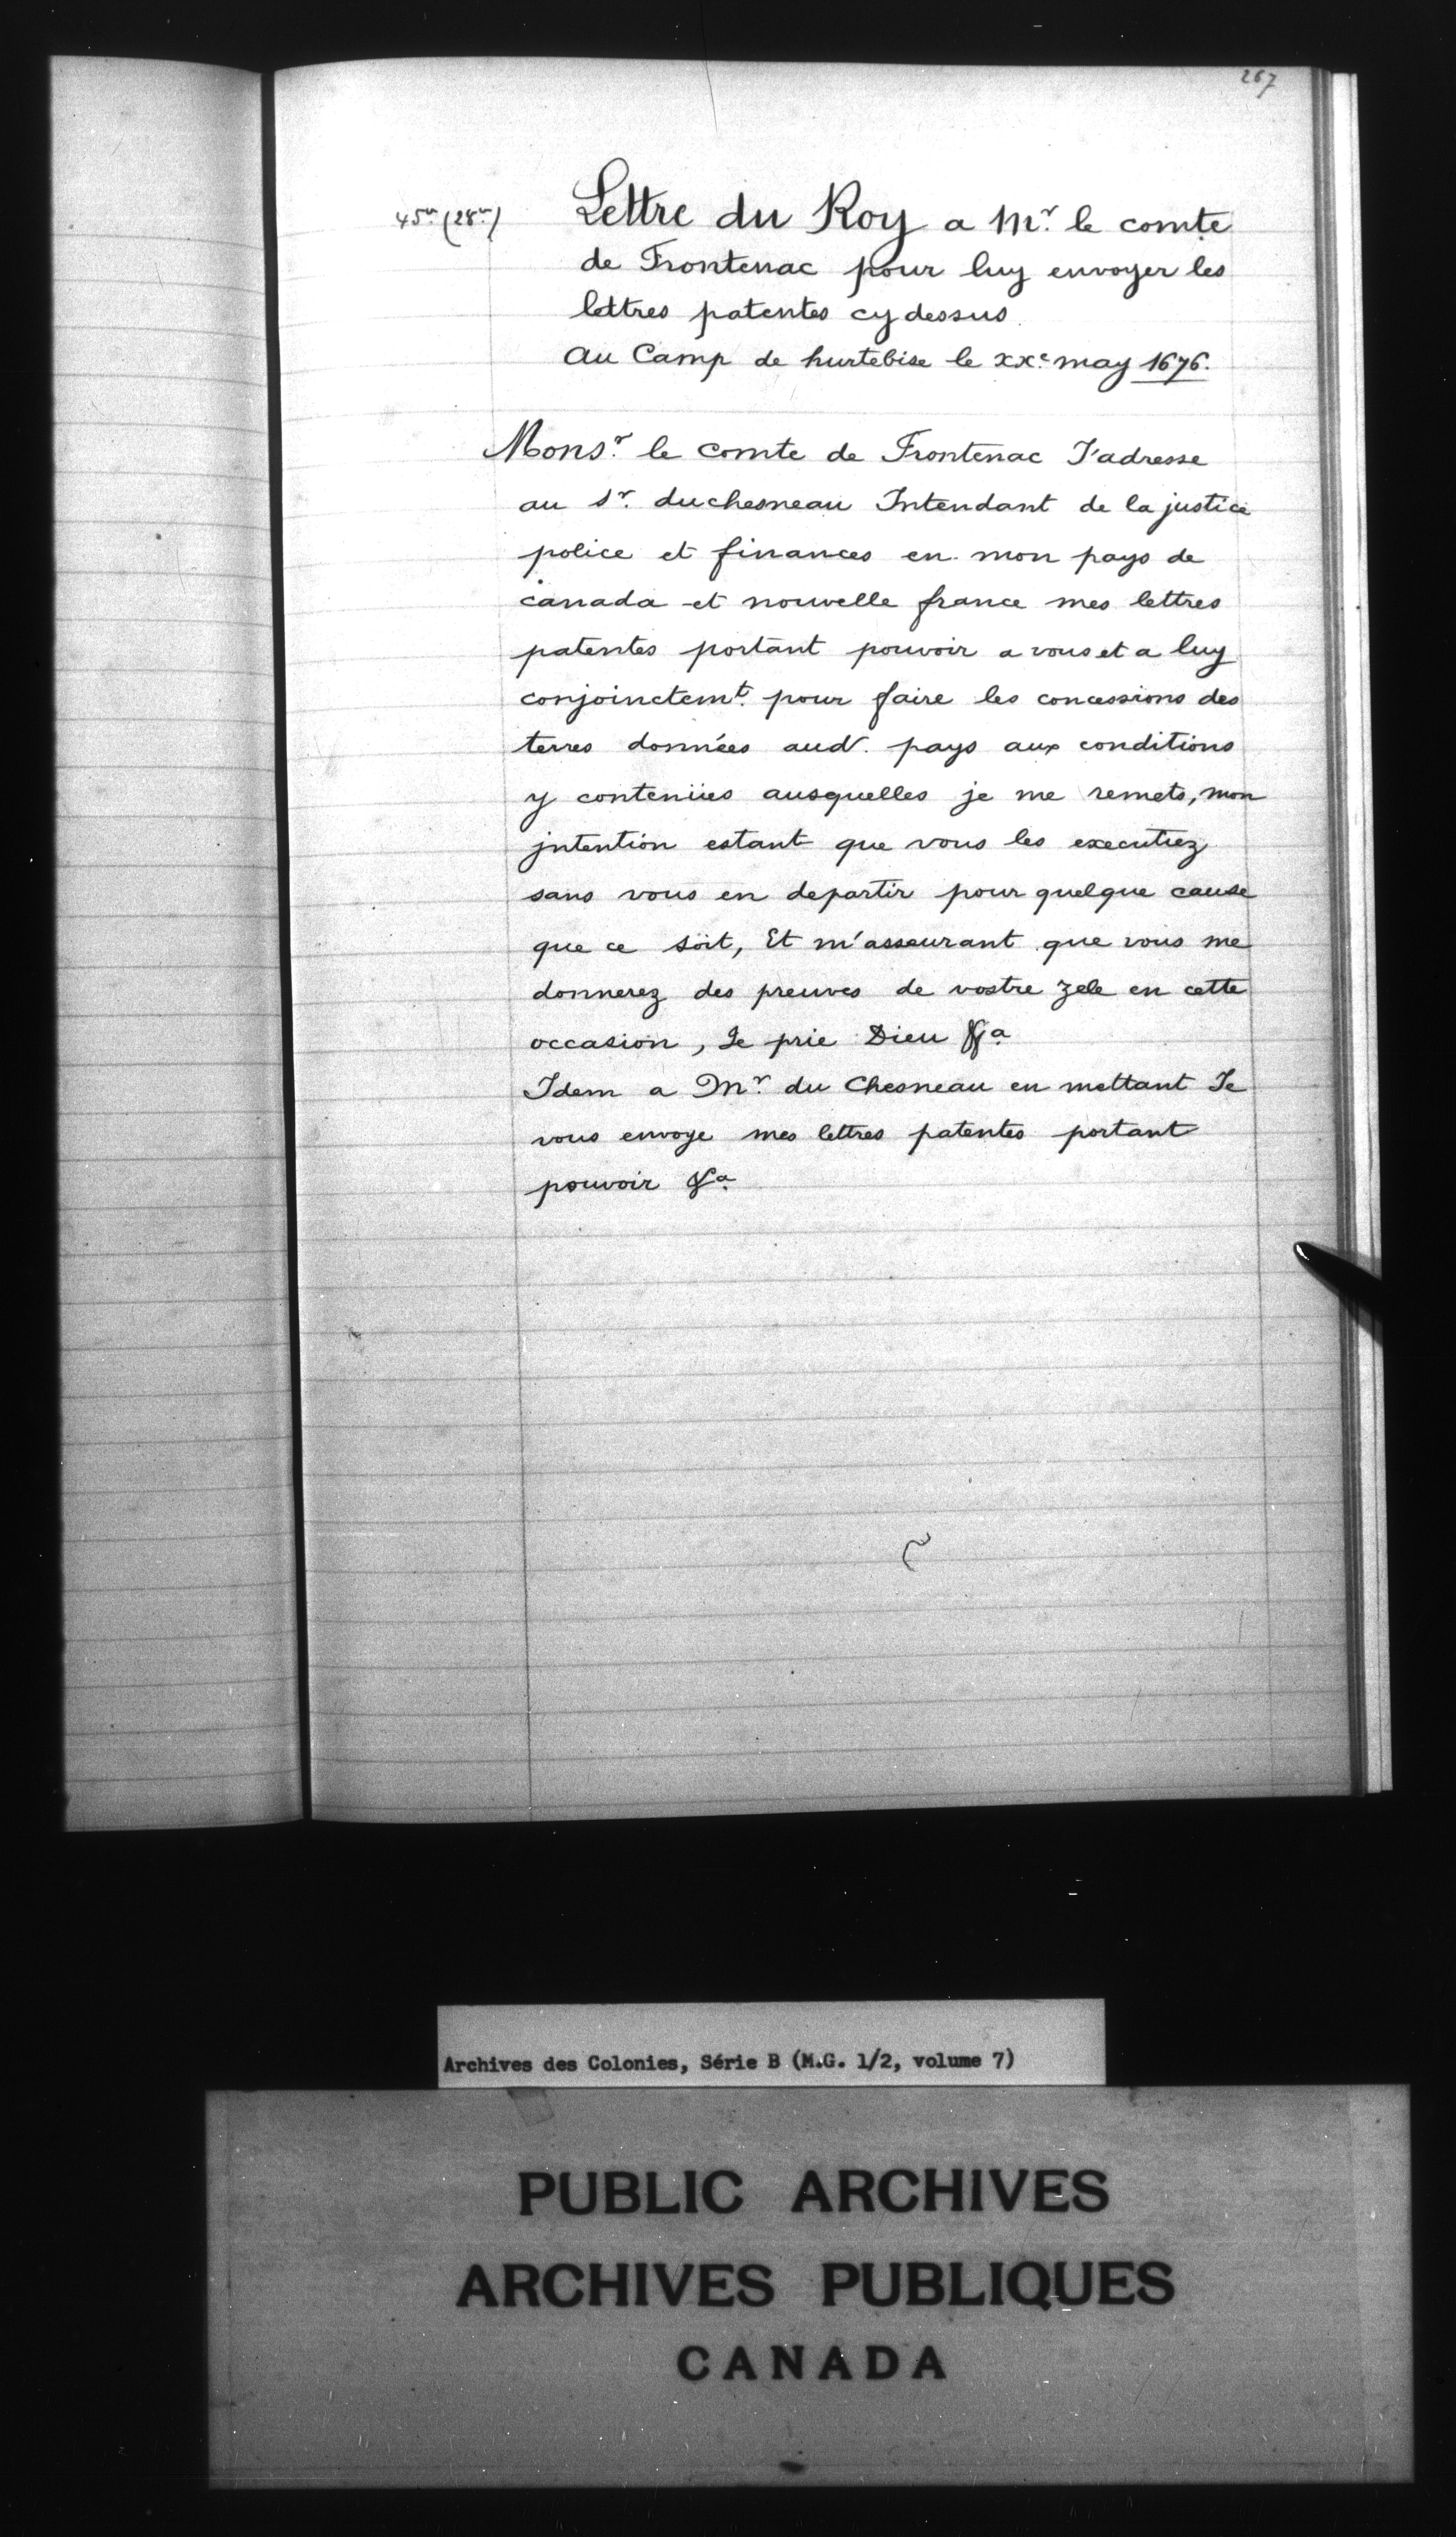 267
45vo (28vo)
Lettre du Roy a Mr. le comte
de Frontenac pour luy envoyer les
lettres patentes cy dessus
Au Camp de hurtebise le xxe may 1676.
Monsr. le comte de Frontenac J'adresse
au Sr. duchesneau Intendant de la justice
police et finances en mon pays de
canada et nouvelle france mes lettres
patentes portant pouvoir a vous et a luy
conjoinctemt. pour faire les concessions des
terres données aud. pays aux conditions
y contenües ausquelles je me remets, mon
jntention estant que vous les executiez
sans vous en departir pour quelque cause
que ce soit, Et m'asseurant que vous me
donnerez des preuves de vostre zele en cette
occasion, Je prie Dieu &a
Idem a Mr. du Chesneau en mettant Je
vous envoye mes lettres patentes portant
pouvoir &a
Archives des Colonies, Série B (M.G. 1/2, volume 7)
PUBLIC ARCHIVES
ARCHIVES PUBLIQUES
CANADA